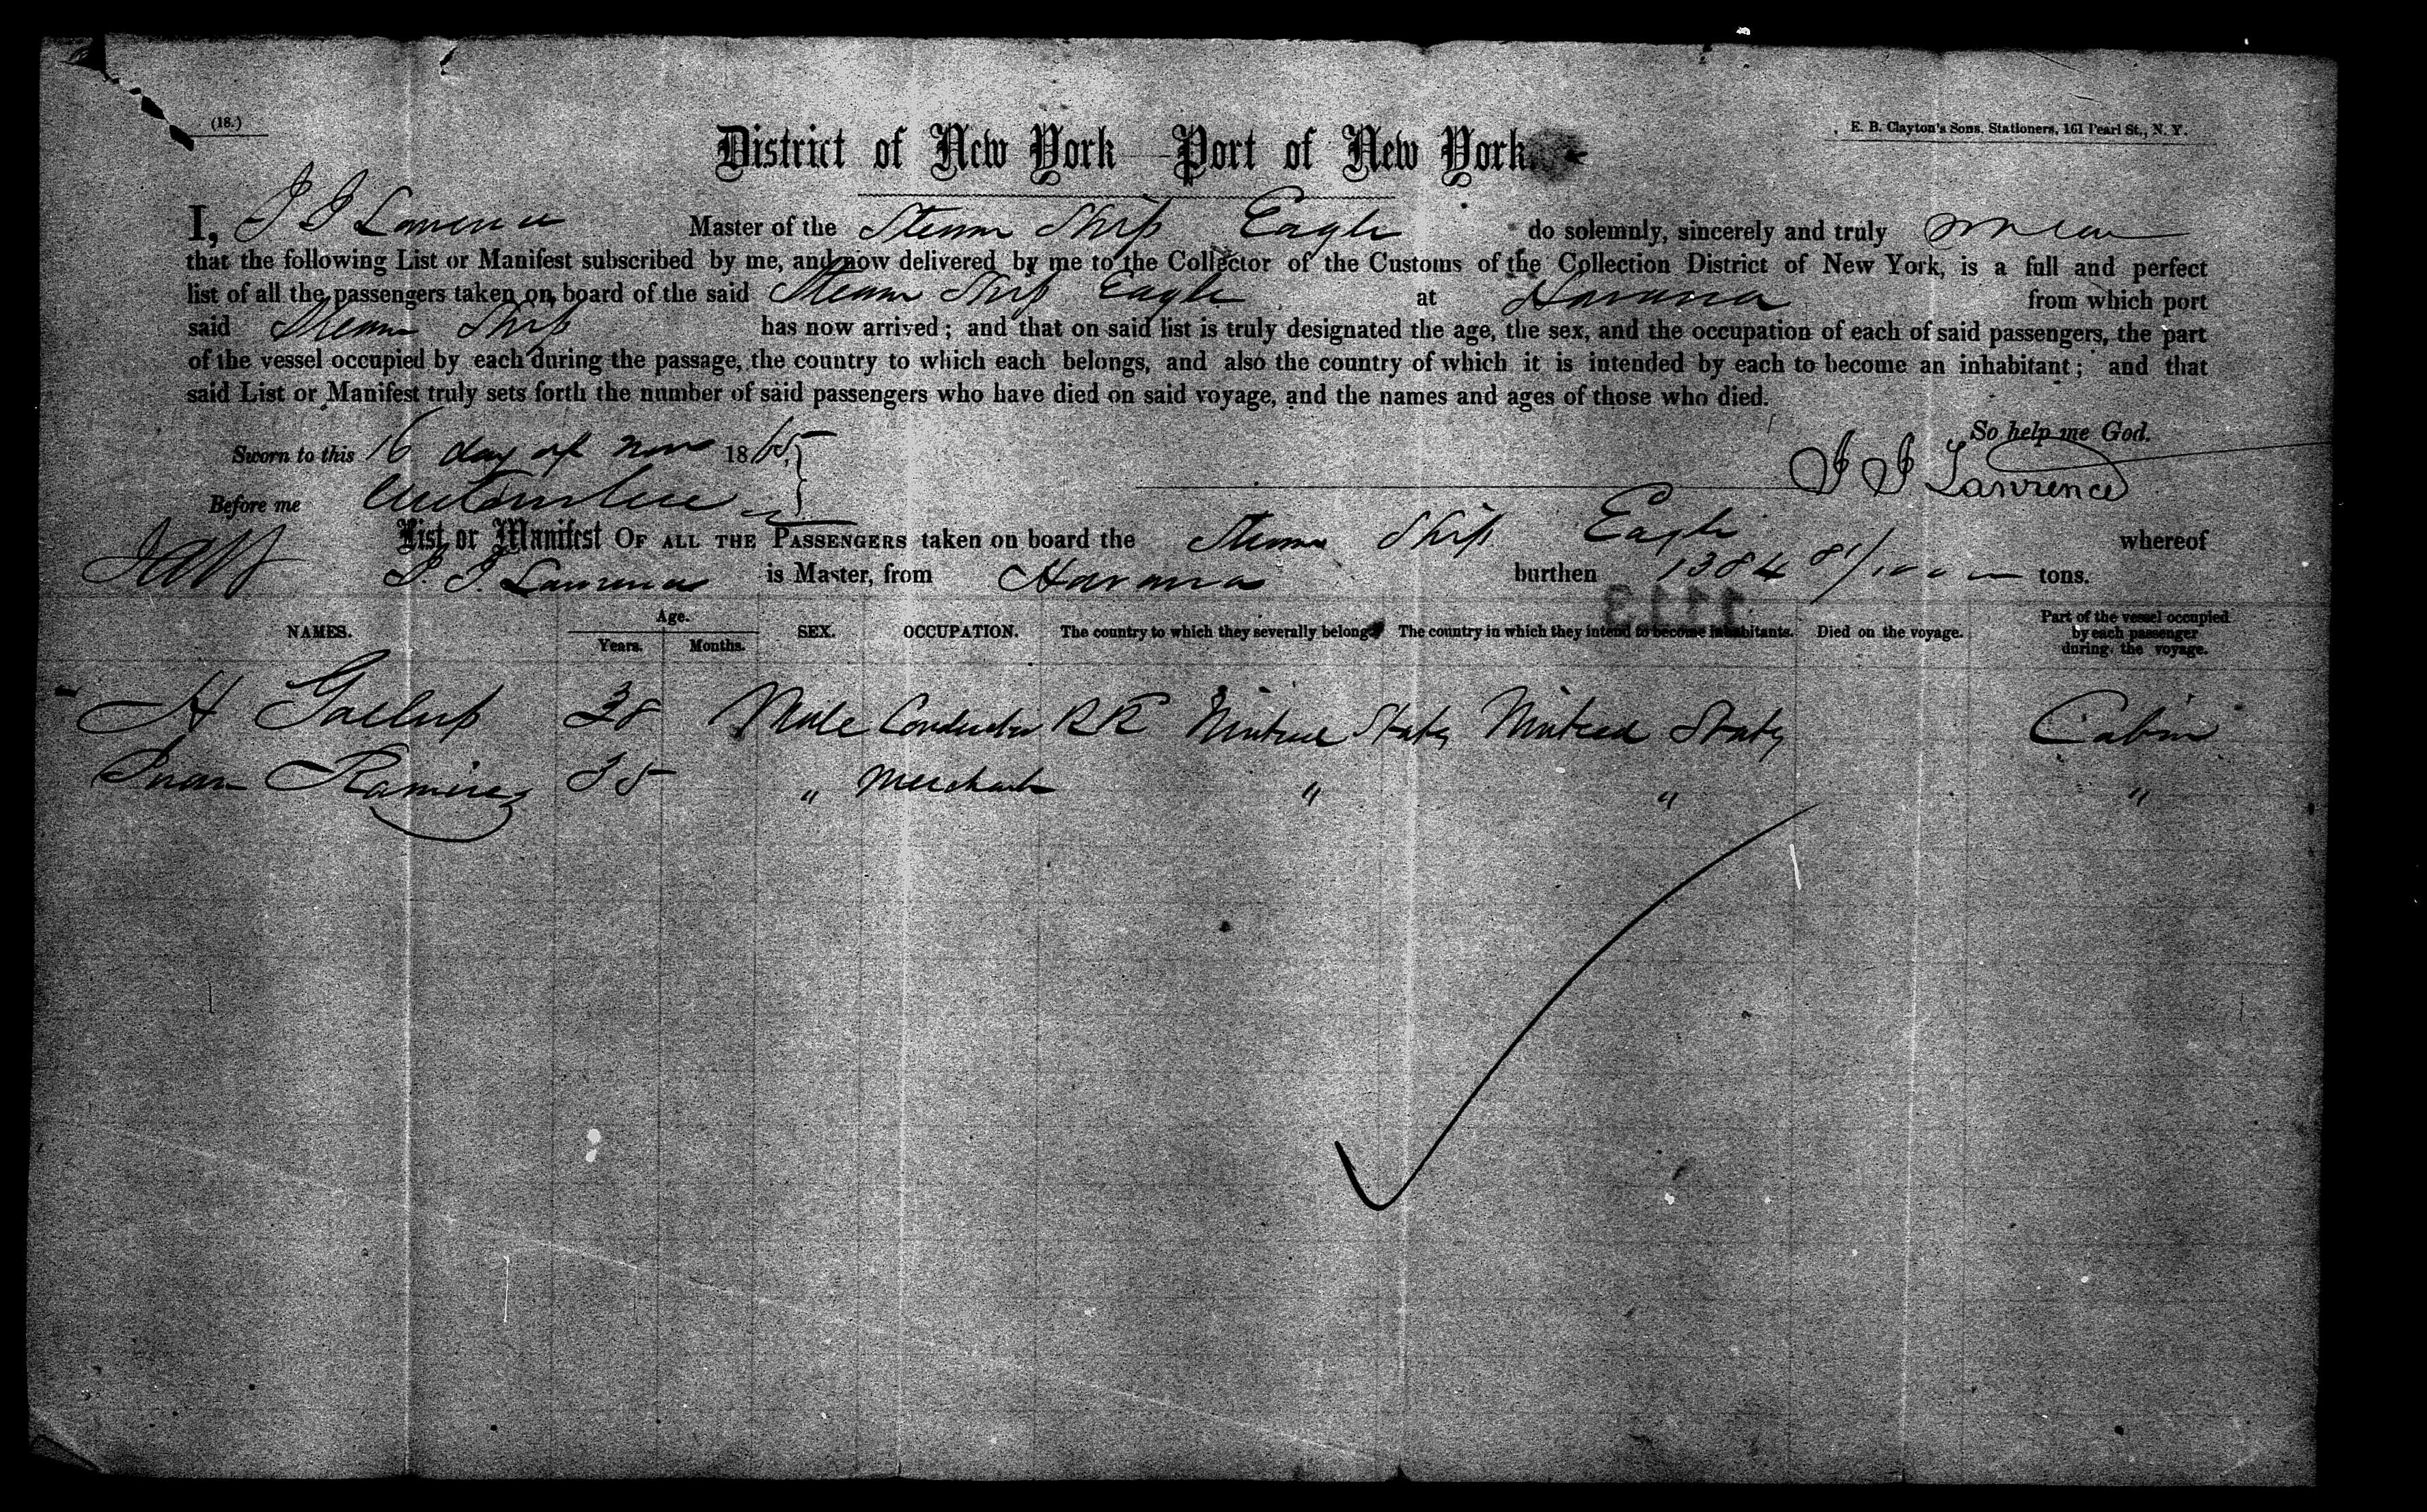 (18.)
E. B. Clayton's Sons, Stationers, 161 Pearl St., N. Y.
District of New York — Port of New York.
I, J J Lawrence Master of the Steam Ship Eagle do solemnly, sincerely and truly swear
that the following List or Manifest subscribed by me, and now delivered by me to the Collector of the Customs of the Collection District of New York, is a full and perfect
list of all the passengers taken on board of the said Steam Ship Eagle at Havana from which port
said Steam Ship has now arrived; and that on said list is truly designated the age, the sex, and the occupation of each of said passengers, the part
of the vessel occupied by each during the passage, the country to which each belongs, and also the country of which it is intended by each to become an inhabitant; and that
said List or Manifest truly sets forth the number of said passengers who have died on said voyage, and the names and ages of those who died.
So help me God.
Sworn to this 16 day of Nov 1865
J J Lawrence
Before me
List or Manifest OF ALL THE PASSENGERS taken on board the Steam Ship Eagle whereof
L. J. Lawrence is Master, from Havana burthen 1384 81/100 tons.
1113
NAMES. Age. Years. Months. SEX. OCCUPATION. The country to which they severally belong. The country in which they intend to become inhabitants. Died on the voyage. Part of the vessel occupied by each passenger during the voyage.
H Gallup 38 Male Conductor RR United States United States Cabin
Juan Ramirez 35 " Merchant " " "